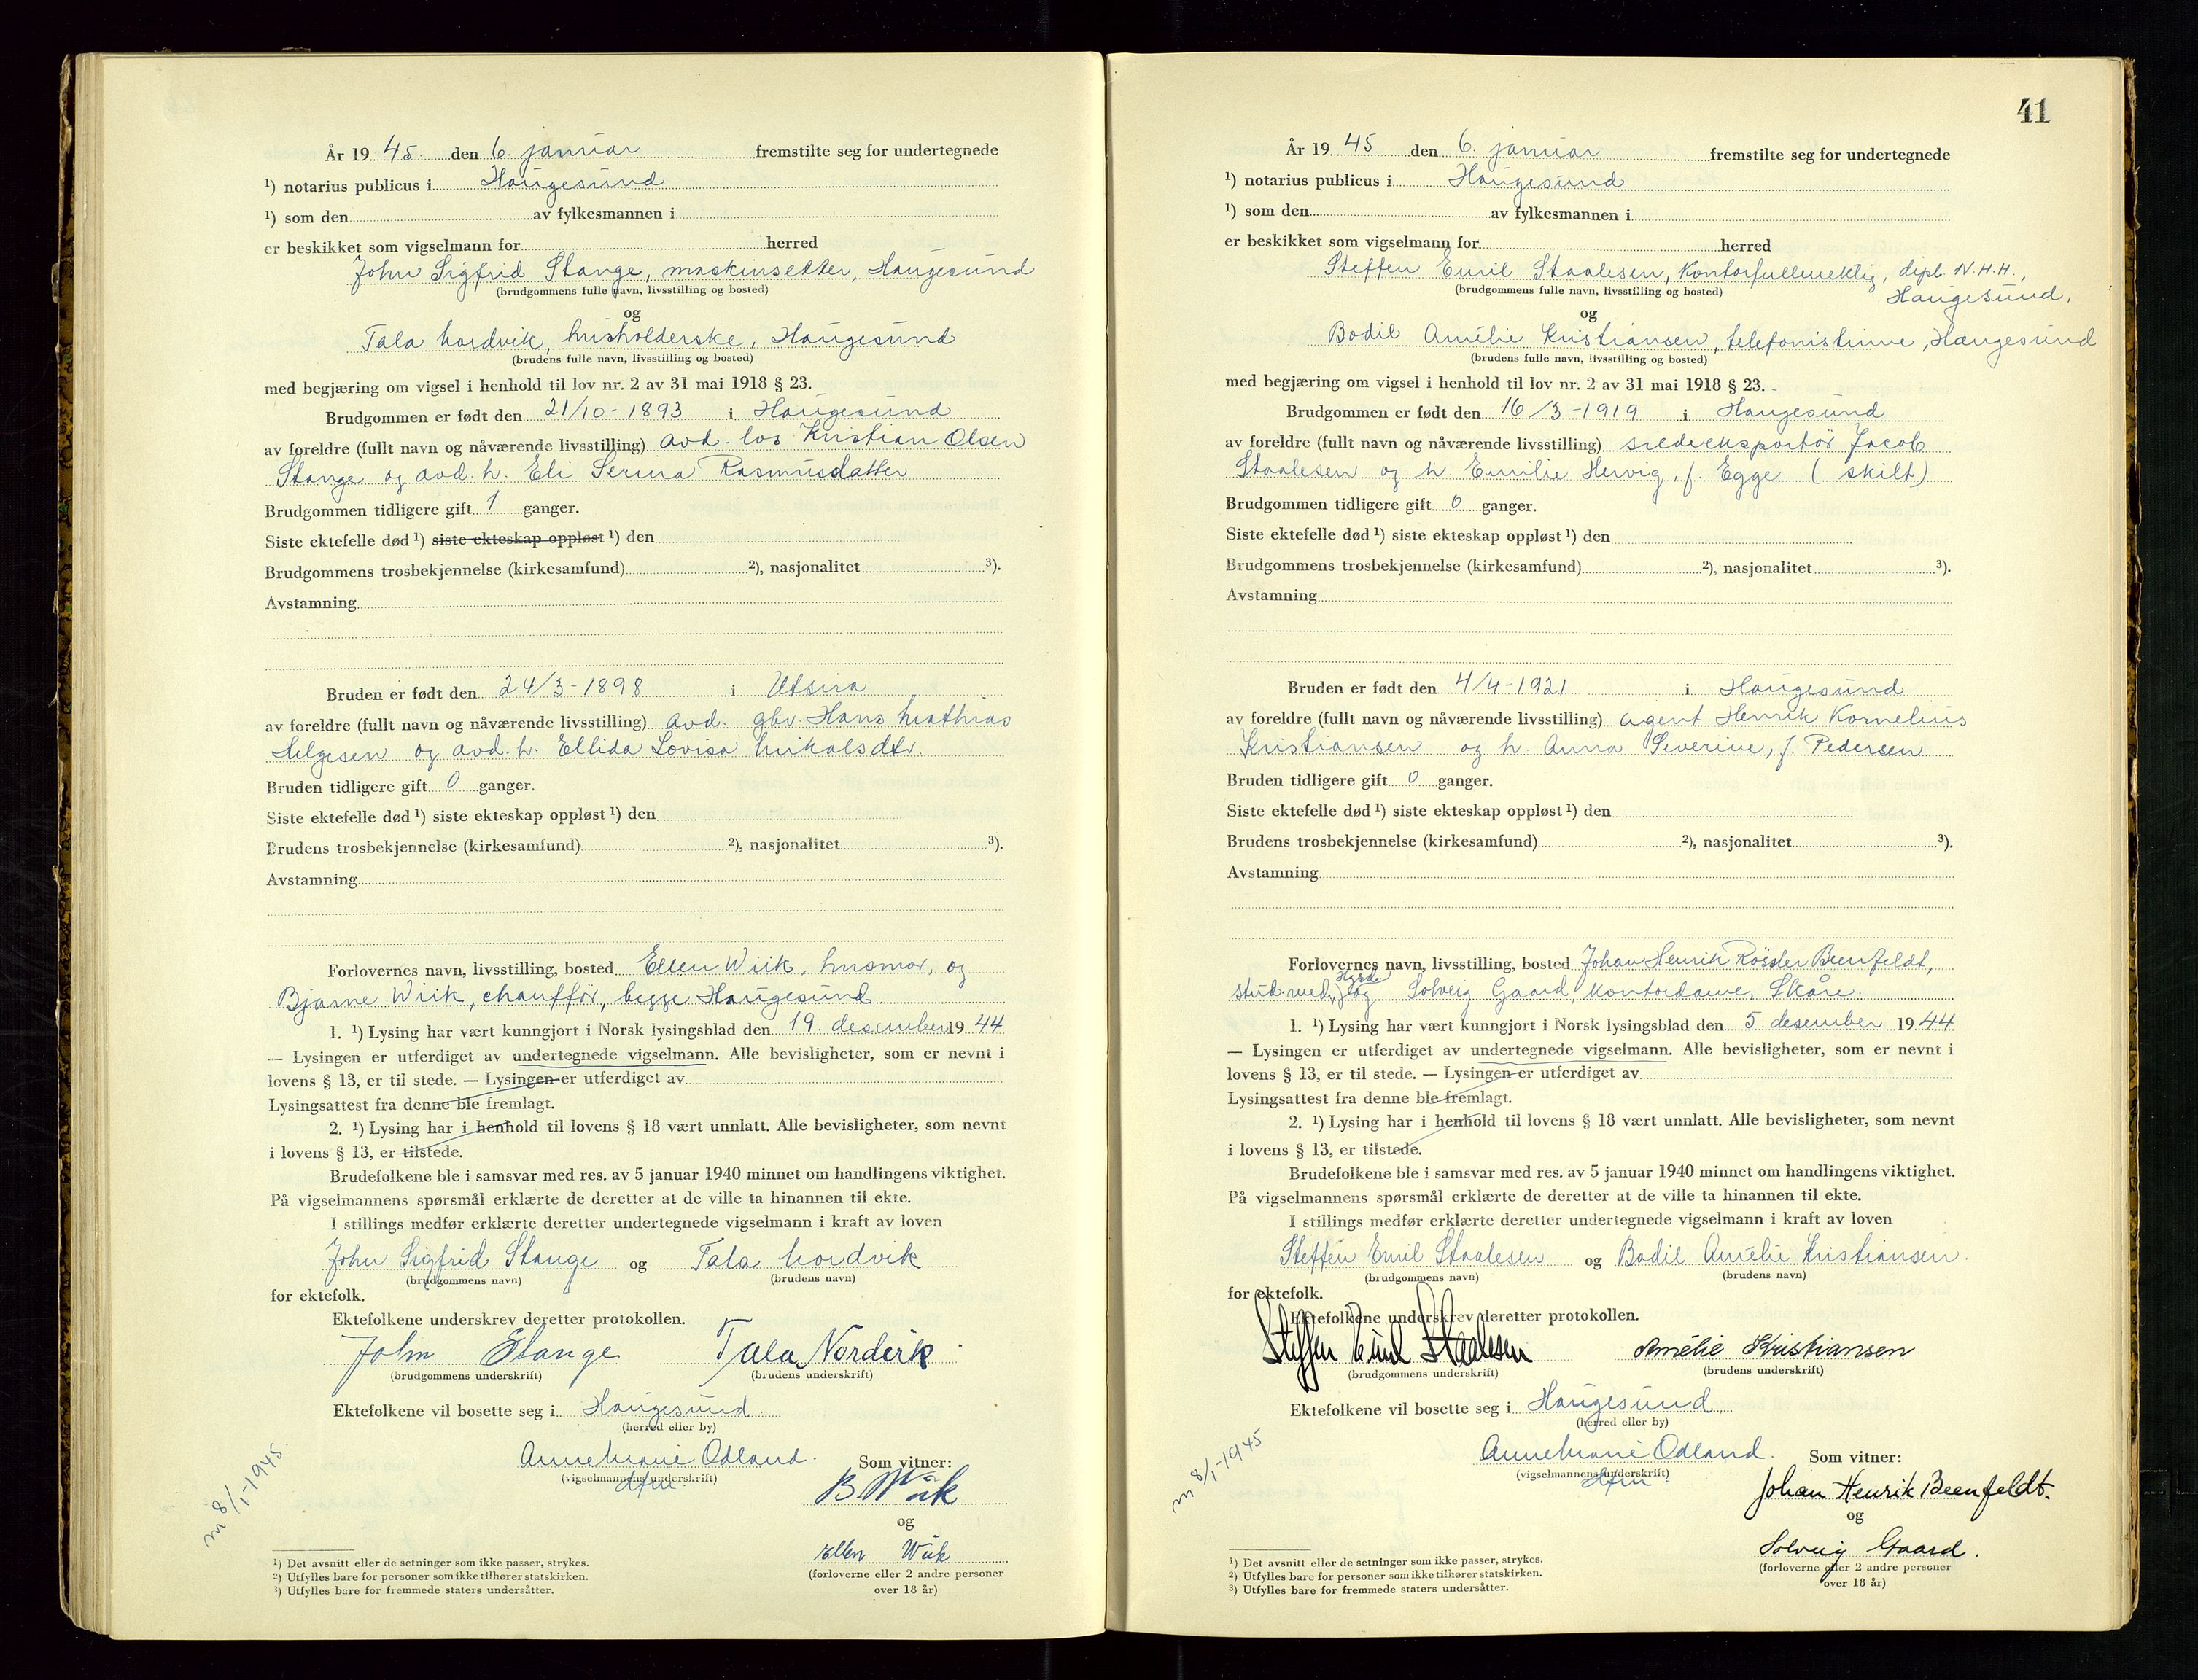 År 19 45. den 6. januar fremstilte seg for undertegnede
¹) notarius publicus i Haugesund
¹) som den av fylkesmannen i
er beskikket som vigselmann for herred
John Sigfrid Stange, maskinsetter, Haugesund
(brudgommens fulle navn, livsstilling og bosted)
og
Tala Nordvik, husholderske, Haugesund
(brudens fulle navn, livsstilling og bosted)
med begjæring om vigsel i henhold til lov nr. 2 av 31 mai 1918 § 23.
Brudgommen er født den 21/10-1893 i Haugesund
av foreldre (fullt navn og nåværende livsstilling) avd. los Kristian Olsen
Stange og avd. h. Eli Serina Rasmusdatter
Brudgommen tidligere gift 1 ganger.
Siste ektefelle død ¹) siste ekteskap oppløst ¹) den
Brudgommens trosbekjennelse (kirkesamfund) ²), nasjonalitet ³).
Avstamning
Bruden er født den 24/3-1898 i Utsira
av foreldre (fullt navn og nåværende livsstilling) avd. gbr. Hans Mathias
Helgesen og avd. h. Ellida Lovisa Nikolsdtr.
Bruden tidligere gift 0 ganger.
Siste ektefelle død ¹) siste ekteskap oppløst ¹) den
Brudens trosbekjennelse (kirkesamfund) ²), nasjonalitet ³).
Avstamning
Forlovernes navn, livsstilling, bosted Ellen Wiik, husmor, og
Bjarne Wiik, chauffør, begge Haugesund
1. ¹) Lysing har vært kunngjort i Norsk lysingsblad den 19. desember 19 44
— Lysingen er utferdiget av undertegnede vigselmann. Alle bevisligheter, som er nevnt i
lovens § 13, er til stede. — Lysingen er utferdiget av
Lysingsattest fra denne ble fremlagt.
2. ¹) Lysing har i henhold til lovens § 18 vært unnlatt. Alle bevisligheter, som nevnt
i lovens § 13, er tilstede.
Brudefolkene ble i samsvar med res. av 5 januar 1940 minnet om handlingens viktighet.
På vigselmannens spørsmål erklærte de deretter at de ville ta hinannen til ekte.
I stillings medfør erklærte deretter undertegnede vigselmann i kraft av loven
John Sigfrid Stange og Tala Nordvik
(brudgommens navn) (brudens navn)
for ektefolk.
Ektefolkene underskrev deretter protokollen.
John Stange Tala Nordvik
(brudgommens underskrift) (brudens underskrift)
Ektefolkene vil bosette seg i Haugesund.
(herred eller by)
Anne Marie Odland. Som vitner:
(vigselmannens underskrift)
B Wiik
og
Ellen Wiik
(forloverne eller 2 andre personer
over 18 år)
m 8/1-1945
¹) Det avsnitt eller de setninger som ikke passer, strykes.
²) Utfylles bare for personer som ikke tilhører statskirken.
³) Utfylles bare for fremmede staters undersåtter.
41
År 19 45 den 6. januar fremstilte seg for undertegnede
¹) notarius publicus i Haugesund
¹) som den av fylkesmannen i
er beskikket som vigselmann for herred
Steffen Emil Staalesen, kontorfullmektig, dipl. N.H.H.,
Haugesund,
(brudgommens fulle navn, livsstilling og bosted)
og
Bodil Amélie Kristiansen, telefonistinne, Haugesund
(brudens fulle navn, livsstilling og bosted)
med begjæring om vigsel i henhold til lov nr. 2 av 31 mai 1918 § 23.
Brudgommen er født den 16/3-1919 i Haugesund
av foreldre (fullt navn og nåværende livsstilling) sildeeksportör Jacob
Staalesen og h. Emilie Hervig, f. Egge (skilt)
Brudgommen tidligere gift 0 ganger.
Siste ektefelle død ¹) siste ekteskap oppløst ¹) den
Brudgommens trosbekjennelse (kirkesamfund) ²), nasjonalitet ³).
Avstamning
Bruden er født den 4/4-1921 i Haugesund
av foreldre (fullt navn og nåværende livsstilling) agent Henrik Kornelius
Kristiansen og h. Anna Severine, f. Pedersen
Bruden tidligere gift 0 ganger.
Siste ektefelle død ¹) siste ekteskap oppløst ¹) den
Brudens trosbekjennelse (kirkesamfund) ²), nasjonalitet ³).
Avstamning
Forlovernes navn, livsstilling, bosted Johan Henrik Rössler Beenfeldt,
stud. med., og Solveig Gaard, kontordame, Skåre.
1. ¹) Lysing har vært kunngjort i Norsk lysingsblad den 5. desember 19 44
— Lysingen er utferdiget av undertegnede vigselmann. Alle bevisligheter, som er nevnt i
lovens § 13, er til stede. — Lysingen er utferdiget av
Lysingsattest fra denne ble fremlagt.
2. ¹) Lysing har i henhold til lovens § 18 vært unnlatt. Alle bevisligheter, som nevnt
i lovens § 13, er tilstede.
Brudefolkene ble i samsvar med res. av 5 januar 1940 minnet om handlingens viktighet.
På vigselmannens spørsmål erklærte de deretter at de ville ta hinannen til ekte.
I stillings medfør erklærte deretter undertegnede vigselmann i kraft av loven
Steffen Emil Staalesen og Bodil Amélie Kristiansen.
(brudgommens navn) (brudens navn)
for ektefolk.
Ektefolkene underskrev deretter protokollen.
Steffen Emil Staalesen Amélie Kristiansen
(brudgommens underskrift) (brudens underskrift)
Ektefolkene vil bosette seg i Haugesund
(herred eller by)
Anne Marie Odland. Som vitner:
(vigselmannens underskrift)
Johan Henrik Beenfeldt.
og
Solveig Gaard.
(forloverne eller 2 andre personer
over 18 år)
m 8/1-1945
¹) Det avsnitt eller de setninger som ikke passer, strykes.
²) Utfylles bare for personer som ikke tilhører statskirken.
³) Utfylles bare for fremmede staters undersåtter.